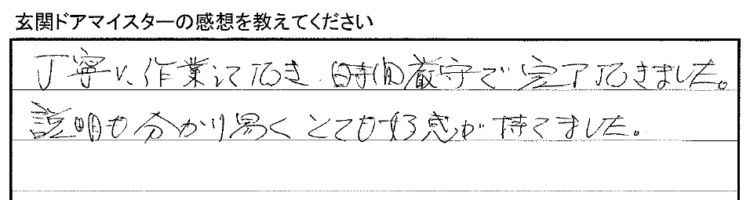 玄関ドアマイスターの感想を教えてください
丁寧に作業して頂き、時間厳守で完了頂きました。
説明も分かり易くとても好感が持てました。